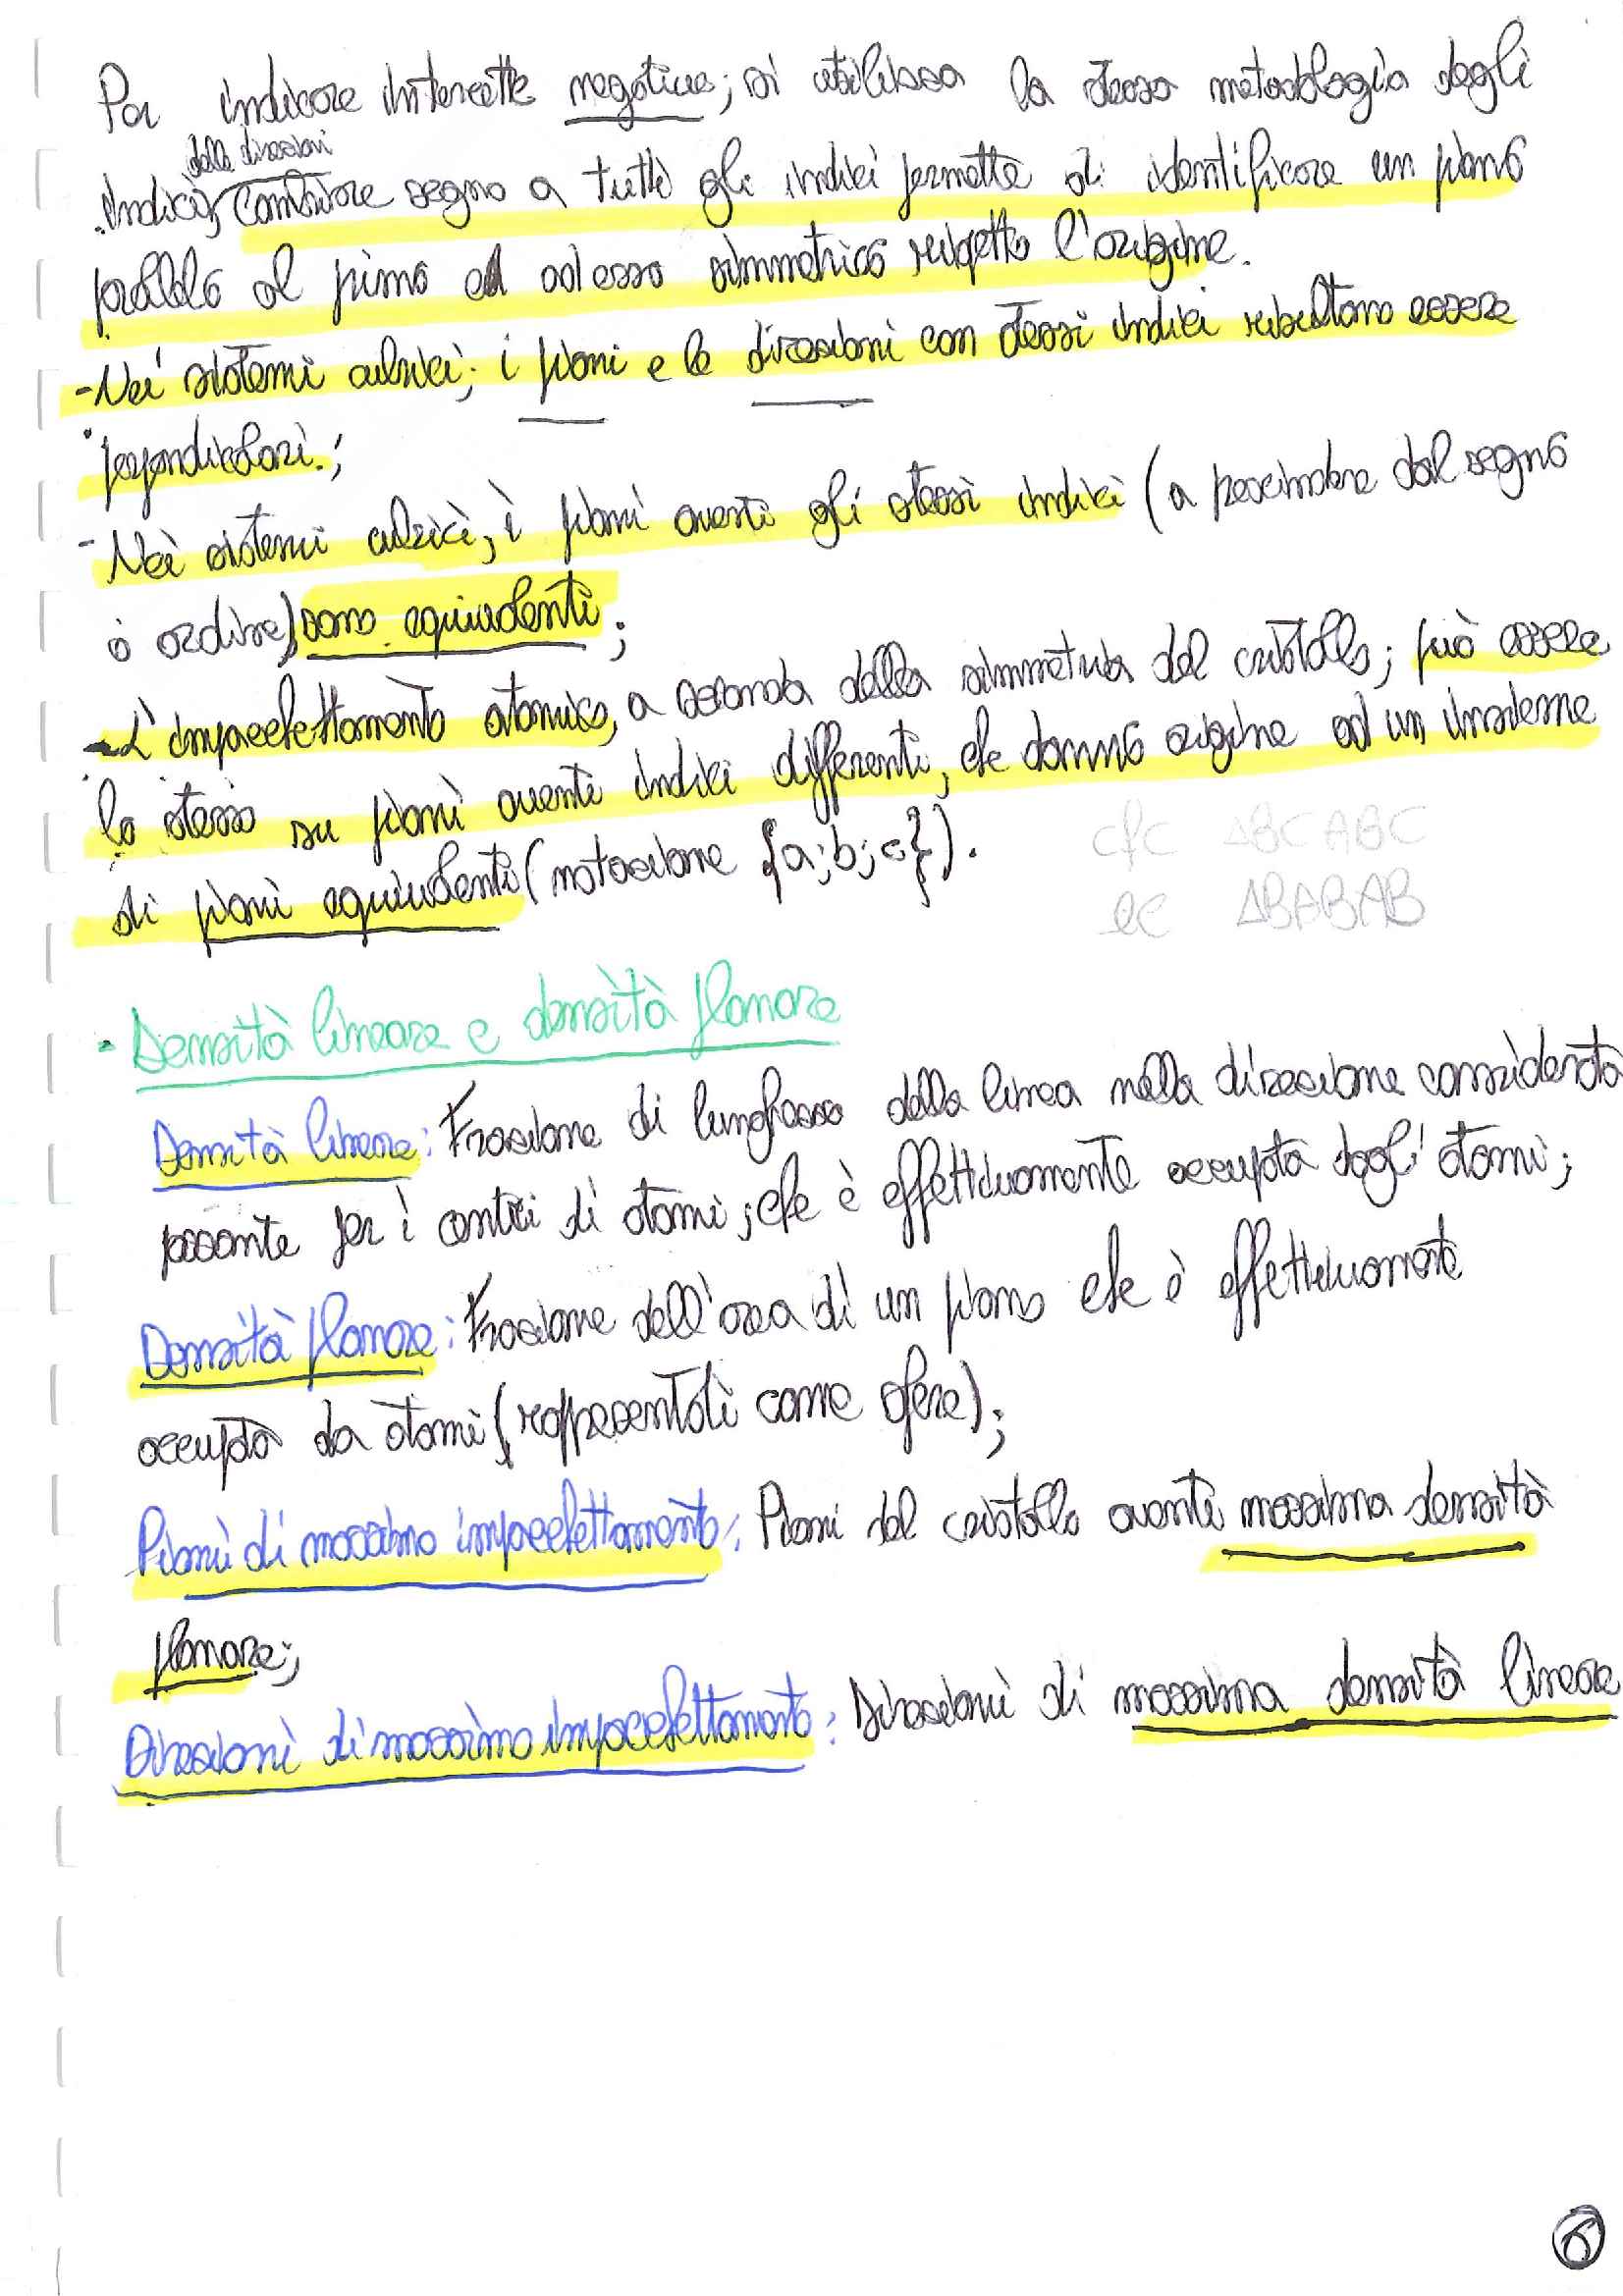 Per indicare intercette negative; si utilizza la stessa metodologia degli
delle direzioni
indici; cambiare segno a tutti gli indici permette di identificare un piano
parallelo al primo ed ad esso simmetrico rispetto l'origine.
- Nei sistemi cubici; i piani e le direzioni con stessi indici risultano essere
perpendicolari.;
- Nei sistemi cubici, i piani aventi gli stessi indici (a prescindere dal segno
o ordine) sono equivalenti;
- L'impacchettamento atomico, a seconda della simmetria del cristallo; può essere
lo stesso su piani aventi indici differenti, che danno origine ad un insieme
di piani equivalenti (notazione {a;b;c}).
cfc ABCABC
ec ABABAB
• Densità lineare e densità planare
Densità lineare: Frazione di lunghezza della linea nella direzione considerata
passante per i centri di atomi; che è effettivamente occupata dagli atomi;
Densità planare: Frazione dell'area di un piano che è effettivamente
occupata da atomi (rappresentati come sfere);
Piani di massimo impacchettamento: Piani del cristallo aventi massima densità
planare;
Direzioni di massimo impacchettamento: Direzioni di massima densità lineare
6